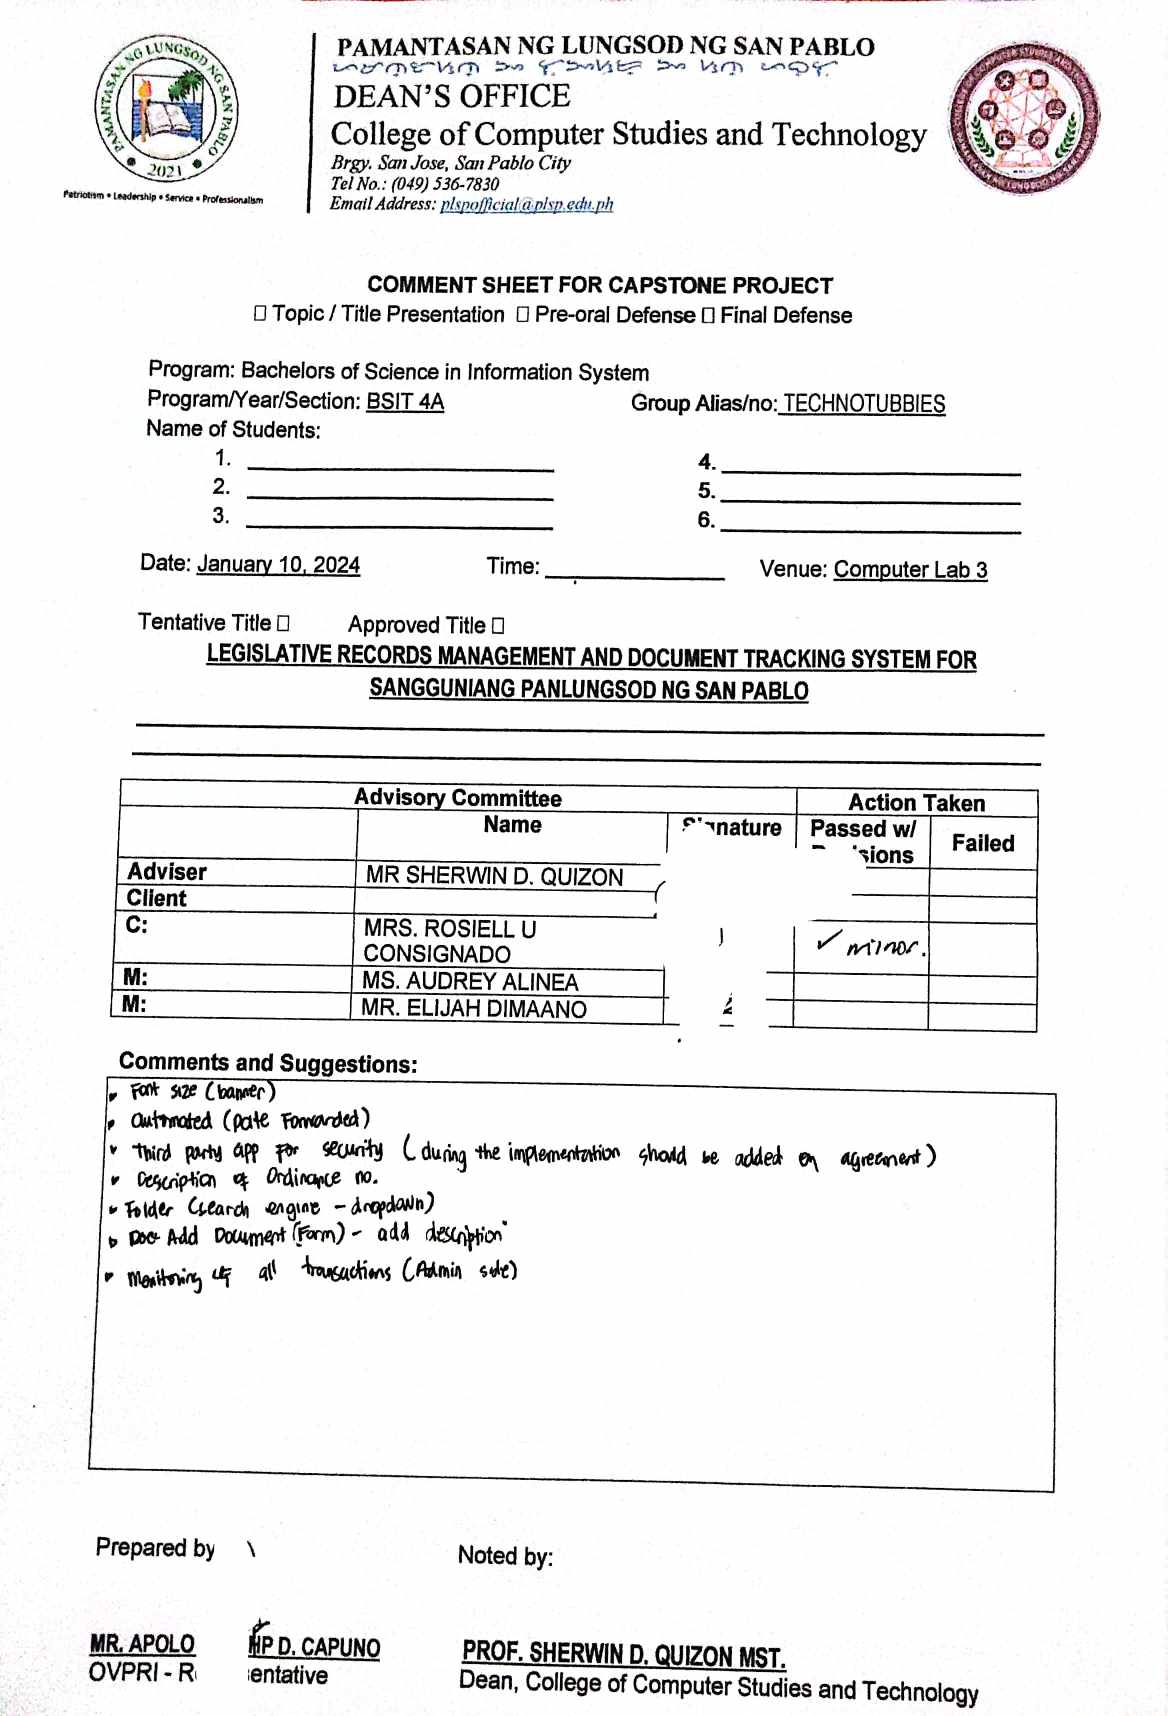 PAMANTASAN NG LUNGSOD NG SAN PABLO
2021
Patriotism • Leadership • Service • Professionalism
PAMANTASAN NG LUNGSOD NG SAN PABLO
DEAN'S OFFICE
College of Computer Studies and Technology
Brgy. San Jose, San Pablo City
Tel No.: (049) 536-7830
Email Address: plspofficial@plsp.edu.ph
COMMENT SHEET FOR CAPSTONE PROJECT
☐ Topic / Title Presentation ☐ Pre-oral Defense ☐ Final Defense
Program: Bachelors of Science in Information System
Program/Year/Section: BSIT 4A Group Alias/no: TECHNOTUBBIES
Name of Students:
1. 4.
2. 5.
3. 6.
Date: January 10, 2024 Time: Venue: Computer Lab 3
Tentative Title ☐ Approved Title ☐
LEGISLATIVE RECORDS MANAGEMENT AND DOCUMENT TRACKING SYSTEM FOR
SANGGUNIANG PANLUNGSOD NG SAN PABLO
Advisory Committee Action Taken
Name Signature Passed w/ Failed
sions
Adviser MR SHERWIN D. QUIZON
Client
C: MRS. ROSIELL U ✓ minor.
CONSIGNADO
M: MS. AUDREY ALINEA
M: MR. ELIJAH DIMAANO
Comments and Suggestions:
Font size (banner)
Automated (Date Forwarded)
Third party app for security (during the implementation should be added on agreement)
Description of Ordinance no.
Folder (search engine - dropdown)
Add Document (Form) - add description
Monitoring of all transactions (Admin side)
Prepared by Noted by:
MR. APOLO D. CAPUNO PROF. SHERWIN D. QUIZON MST.
OVPRI - R entative Dean, College of Computer Studies and Technology